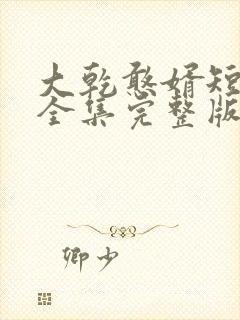 大乾憨婿短
全集完整版
卿少